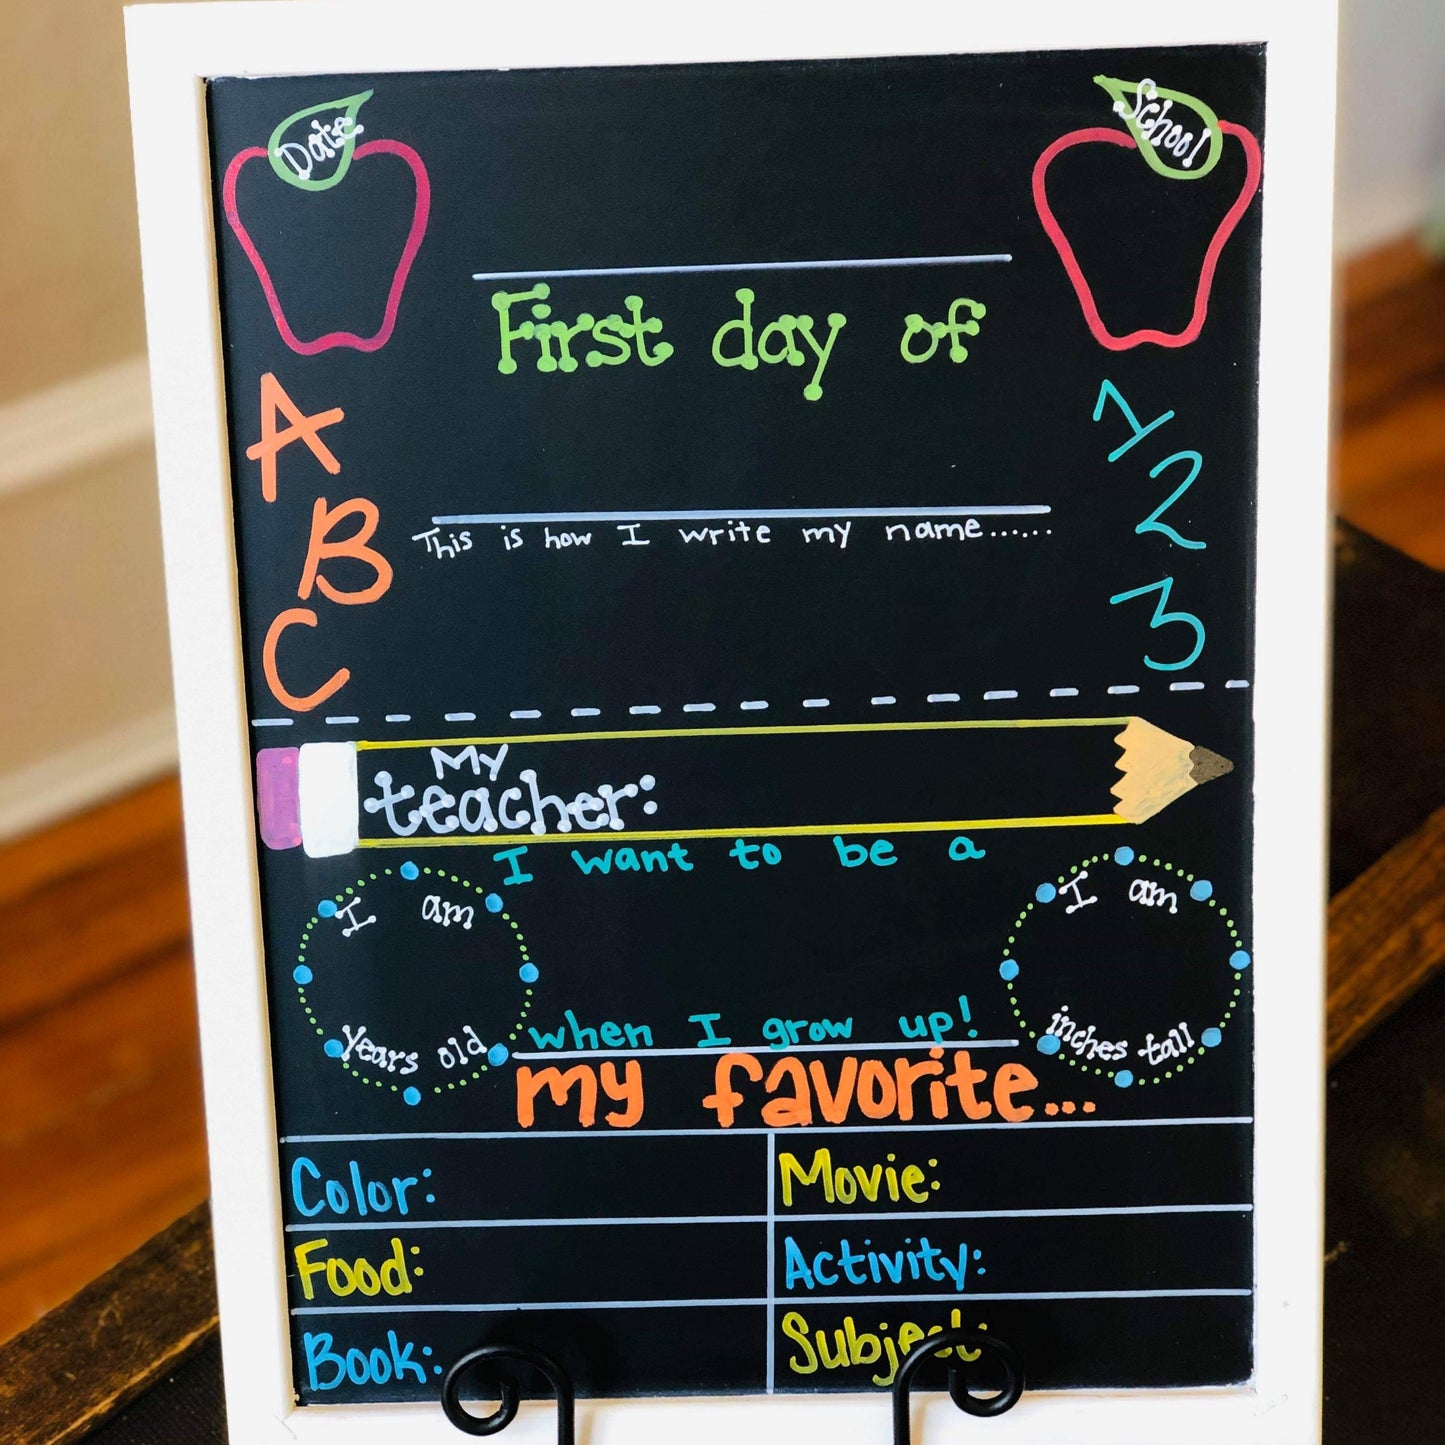 Date
School
First day of
A
B
C
1
2
3
This is how I write my name......
My
teacher:
I want to be a
I am
years old
I am
inches tall
when I grow up!
my favorite...
Color:
Movie:
Food:
Activity:
Book:
Subject: